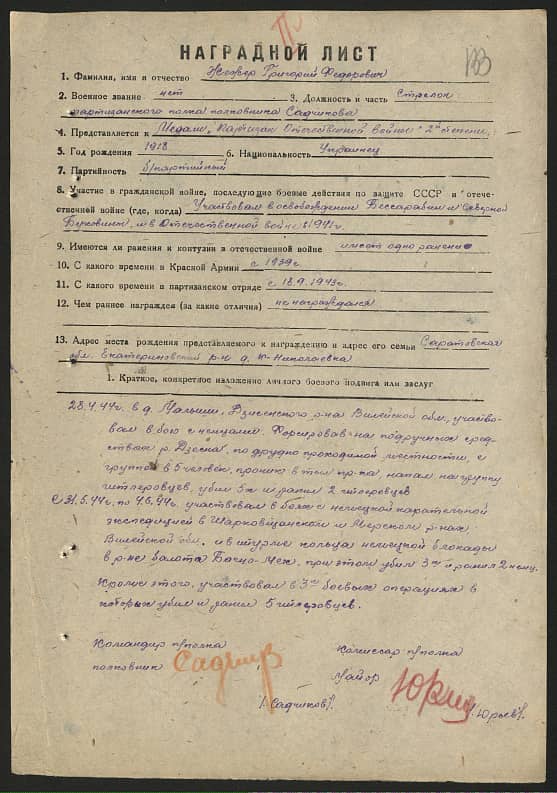 133
НАГРАДНОЙ ЛИСТ
1. Фамилия, имя и отчество Григорий Федорович
2. Военное звание нет 3. Должность и часть Стрелок
партизанского полка полковника Садчикова
4. Представляется к Медали „Партизан Отечественной Войны" 2й степени.
5. Год рождения 1918 6. Национальность Украинец
7. Партийность б/партийный
8. Участие в гражданской войне, последующие боевые действия по защите СССР и отече-
ственной войне (где, когда) Участвовал в освобождении Бессарабии и Северной
Буковины, и в Отечественной войне с 1941 г.
9. Имеются ли ранения и контузии в отечественной войне имеет одно ранение
10. С какого времени в Красной Армии с 1939 г.
11. С какого времени в партизанском отряде с 18.9.1943 г.
12. Чем ранее награжден (за какие отличия) не награждался
13. Адрес места рождения представляемого к награждению и адрес его семьи Саратовская
обл. Екатериновский р-н д. Николаевка
1. Краткое, конкретное изложение личного боевого подвига или заслуг
28.4.44 г. в д. Р-на Вилейской обл., участво-
вал в бою с немцами. Форсировав на подручных сред-
ствах р. по трудно проходимой местности, с
группой в 5 человек, проник в тыл пр-ка, напал на группу
гитлеровцев, убил и ранил 2 гитлеровцев
С 31.5.44 г. по участвовал в боях с немецкой карательной
экспедицией в Шарковщинском и Мерском р-нах
Вилейской обл. и в штурме кольца немецкой блокады
в р-не болота при этом убил 3 и ранил 2 нем.
Кроме этого, участвовал в 3х боевых операциях в
которых убил и ранил 5 гитлеровцев.
Командир п/полка Комиссар п/полка
полковник майор
/Садчиков/. /Юрьев/.